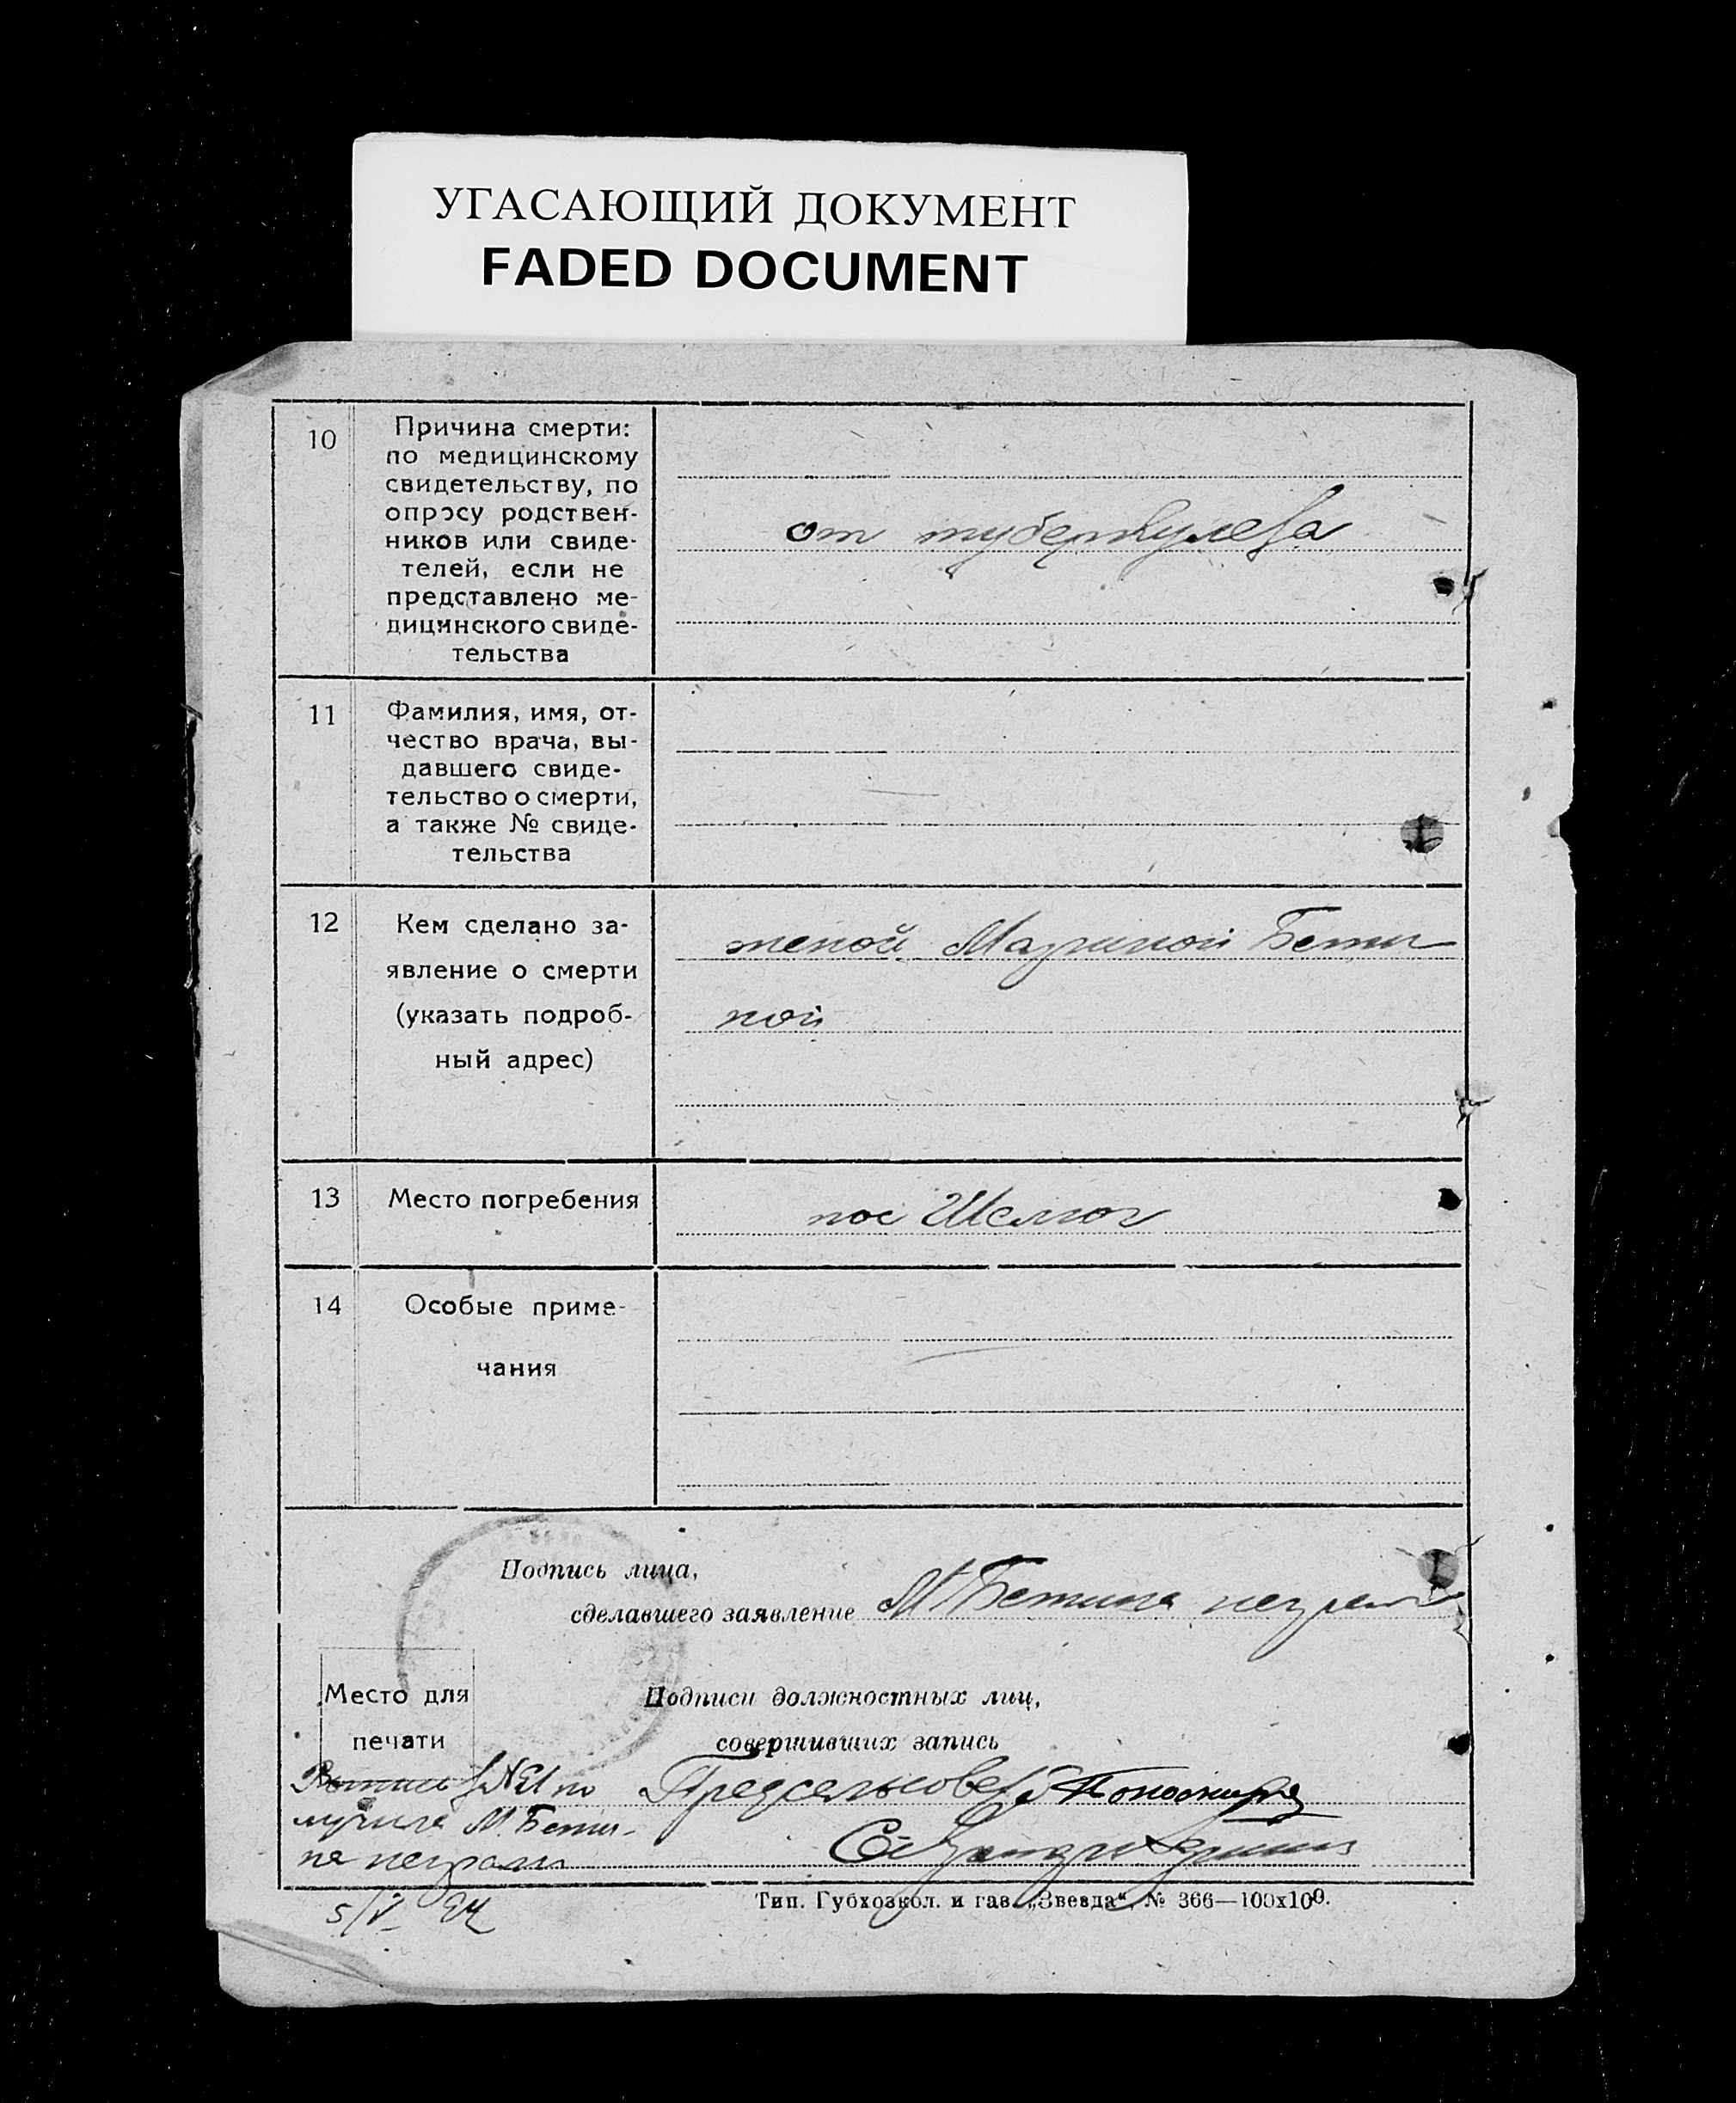 УГАСАЮЩИЙ ДОКУМЕНТ
FADED DOCUMENT
10
Причина смерти:
по медицинскому
свидетельству, по
опросу родствен-
ников или свиде-
телей, если не
представлено ме-
дицинского свиде-
тельства
от туберкулеза
11
Фамилия, имя, от-
чество врача, вы-
давшего свиде-
тельство о смерти,
а также № свиде-
тельства
12
Кем сделано за-
явление о смерти
(указать подроб-
ный адрес)
женой Мариной Бети
ной
13
Место погребения
пос
14
Особые приме-
чания
Подпись лица,
сделавшего заявление М Бетина неграм
Место для
печати
Подписи должностных лиц,
совершивших запись
по
Предсельсовета
лучила М. Бети-
на неграм
5/V 24
Тип. Губхозкол. и газ. „Звезда“. № 366—100х100.